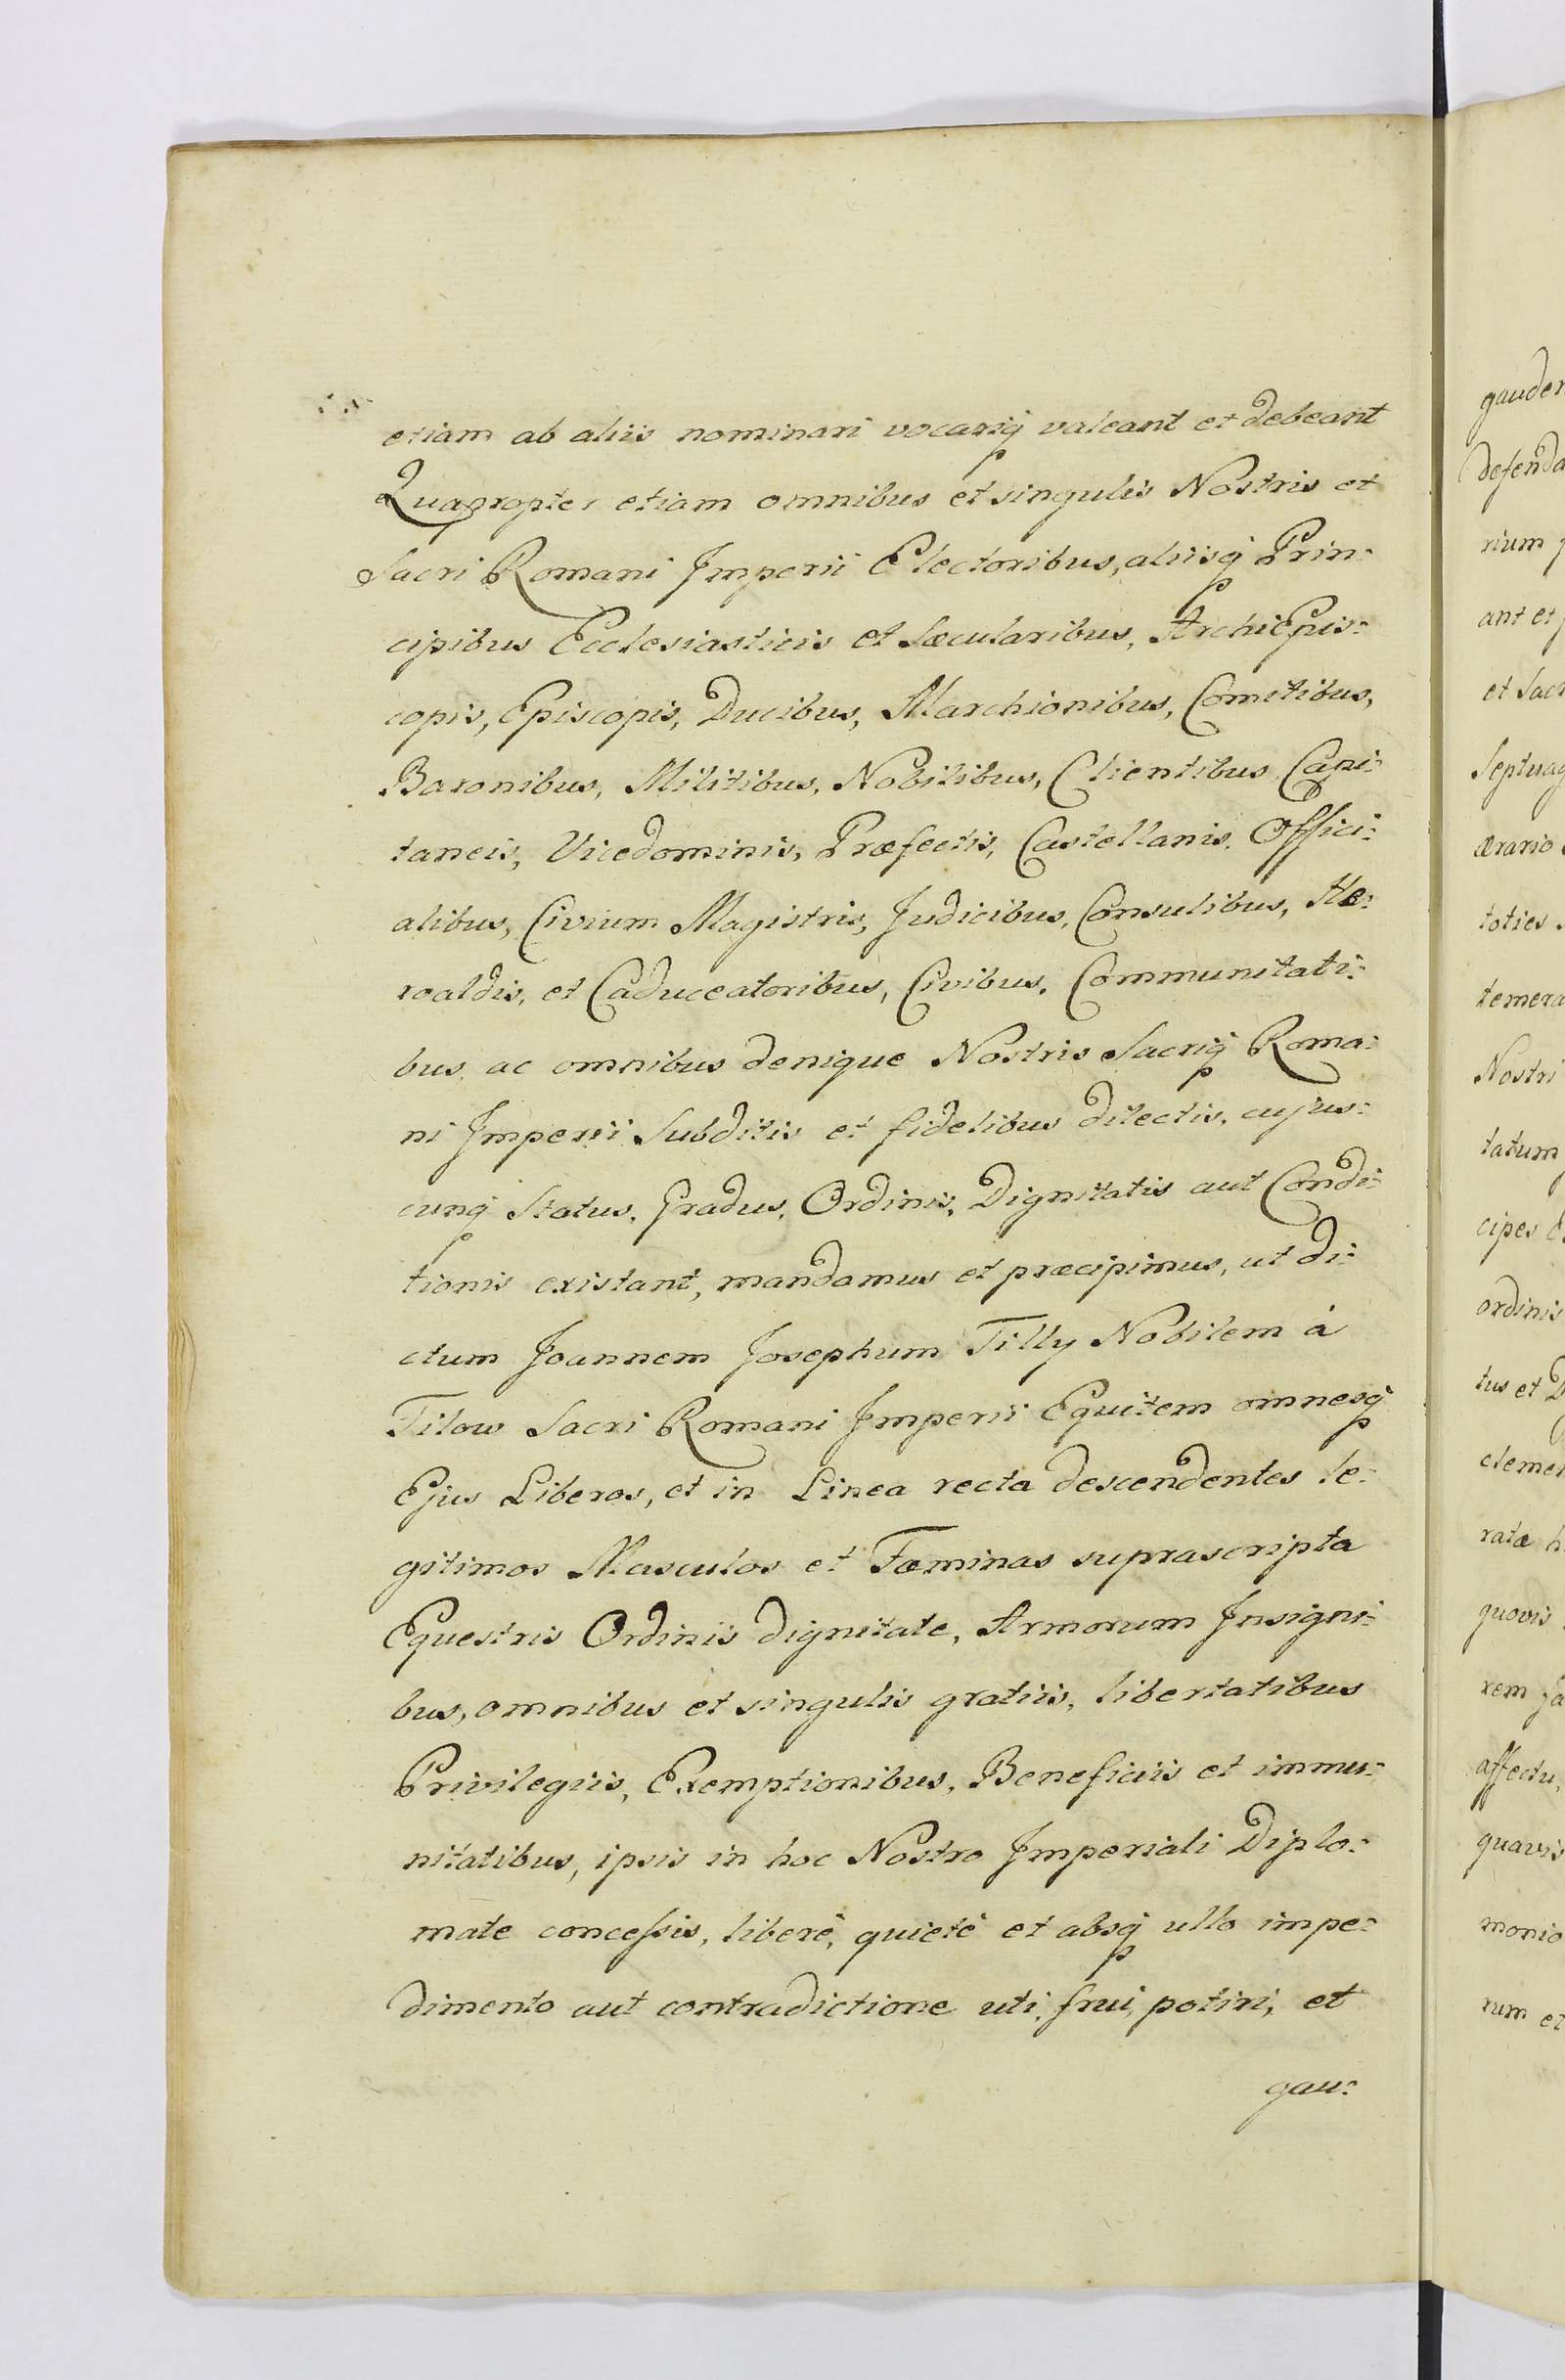 etiam ab aliis nominari vocariq̃ valeant et debeant
Quapropter etiam omnibus et singulis Nostris et
Sacri Romani Imperii Electoribus, aliisq̃ Prin:
cipibus Ecclesiasticis et Sæcularibus, ArchiEpis:
copis, Episcopis, Ducibus, Marchionibus, Comitibus,
Baronibus, Militibus, Nobilibus, Clientibus, Capi:
taneis, Vicedominis, Præfectis, Castellanis, Offici:
alibus, Civium Magistris, Judicibus, Consulibus, He:
roaldis, et Caduceatoribus, Civibus, Communitati:
bus, ac omnibus denique Nostris Sacriq̃ Roma:
ni Imperii Subditis et fidelibus dilectis, cujus:
cunq̃ Status, Gradus, Ordinis, Dignitatis aut Condi:
tionis existant, mandamus et præcipimus, ut di:
ctum Joannem Josephum Tilly Nobilem à
Tilow Sacri Romani Imperii Equitem omnesq̃
Ejus Liberos, et in Linea recta descendentes le:
gitimos Masculos et Fæminas suprascripta
Equestris Ordinis dignitate, Armorum Insigni:
bus, omnibus et singulis gratiis, libertatibus
Privilegiis, Exemptionibus, Beneficiis et immu:
nitatibus, ipsis in hoc Nostro Imperiali Diplo:
mate concessis, liberè, quietè et absq̃ ullo impe:
dimento aut contradictione uti, frui, potiri, et
gau:
gauden
defenda
rium
ant et
et Sacr
Septuag
ærario
toties
temera
Nostri
tatum
cipes
ordinis
tus et D
clemen
ratæ h
quovis
rem fa
affectu,
quavis
monio
rum et